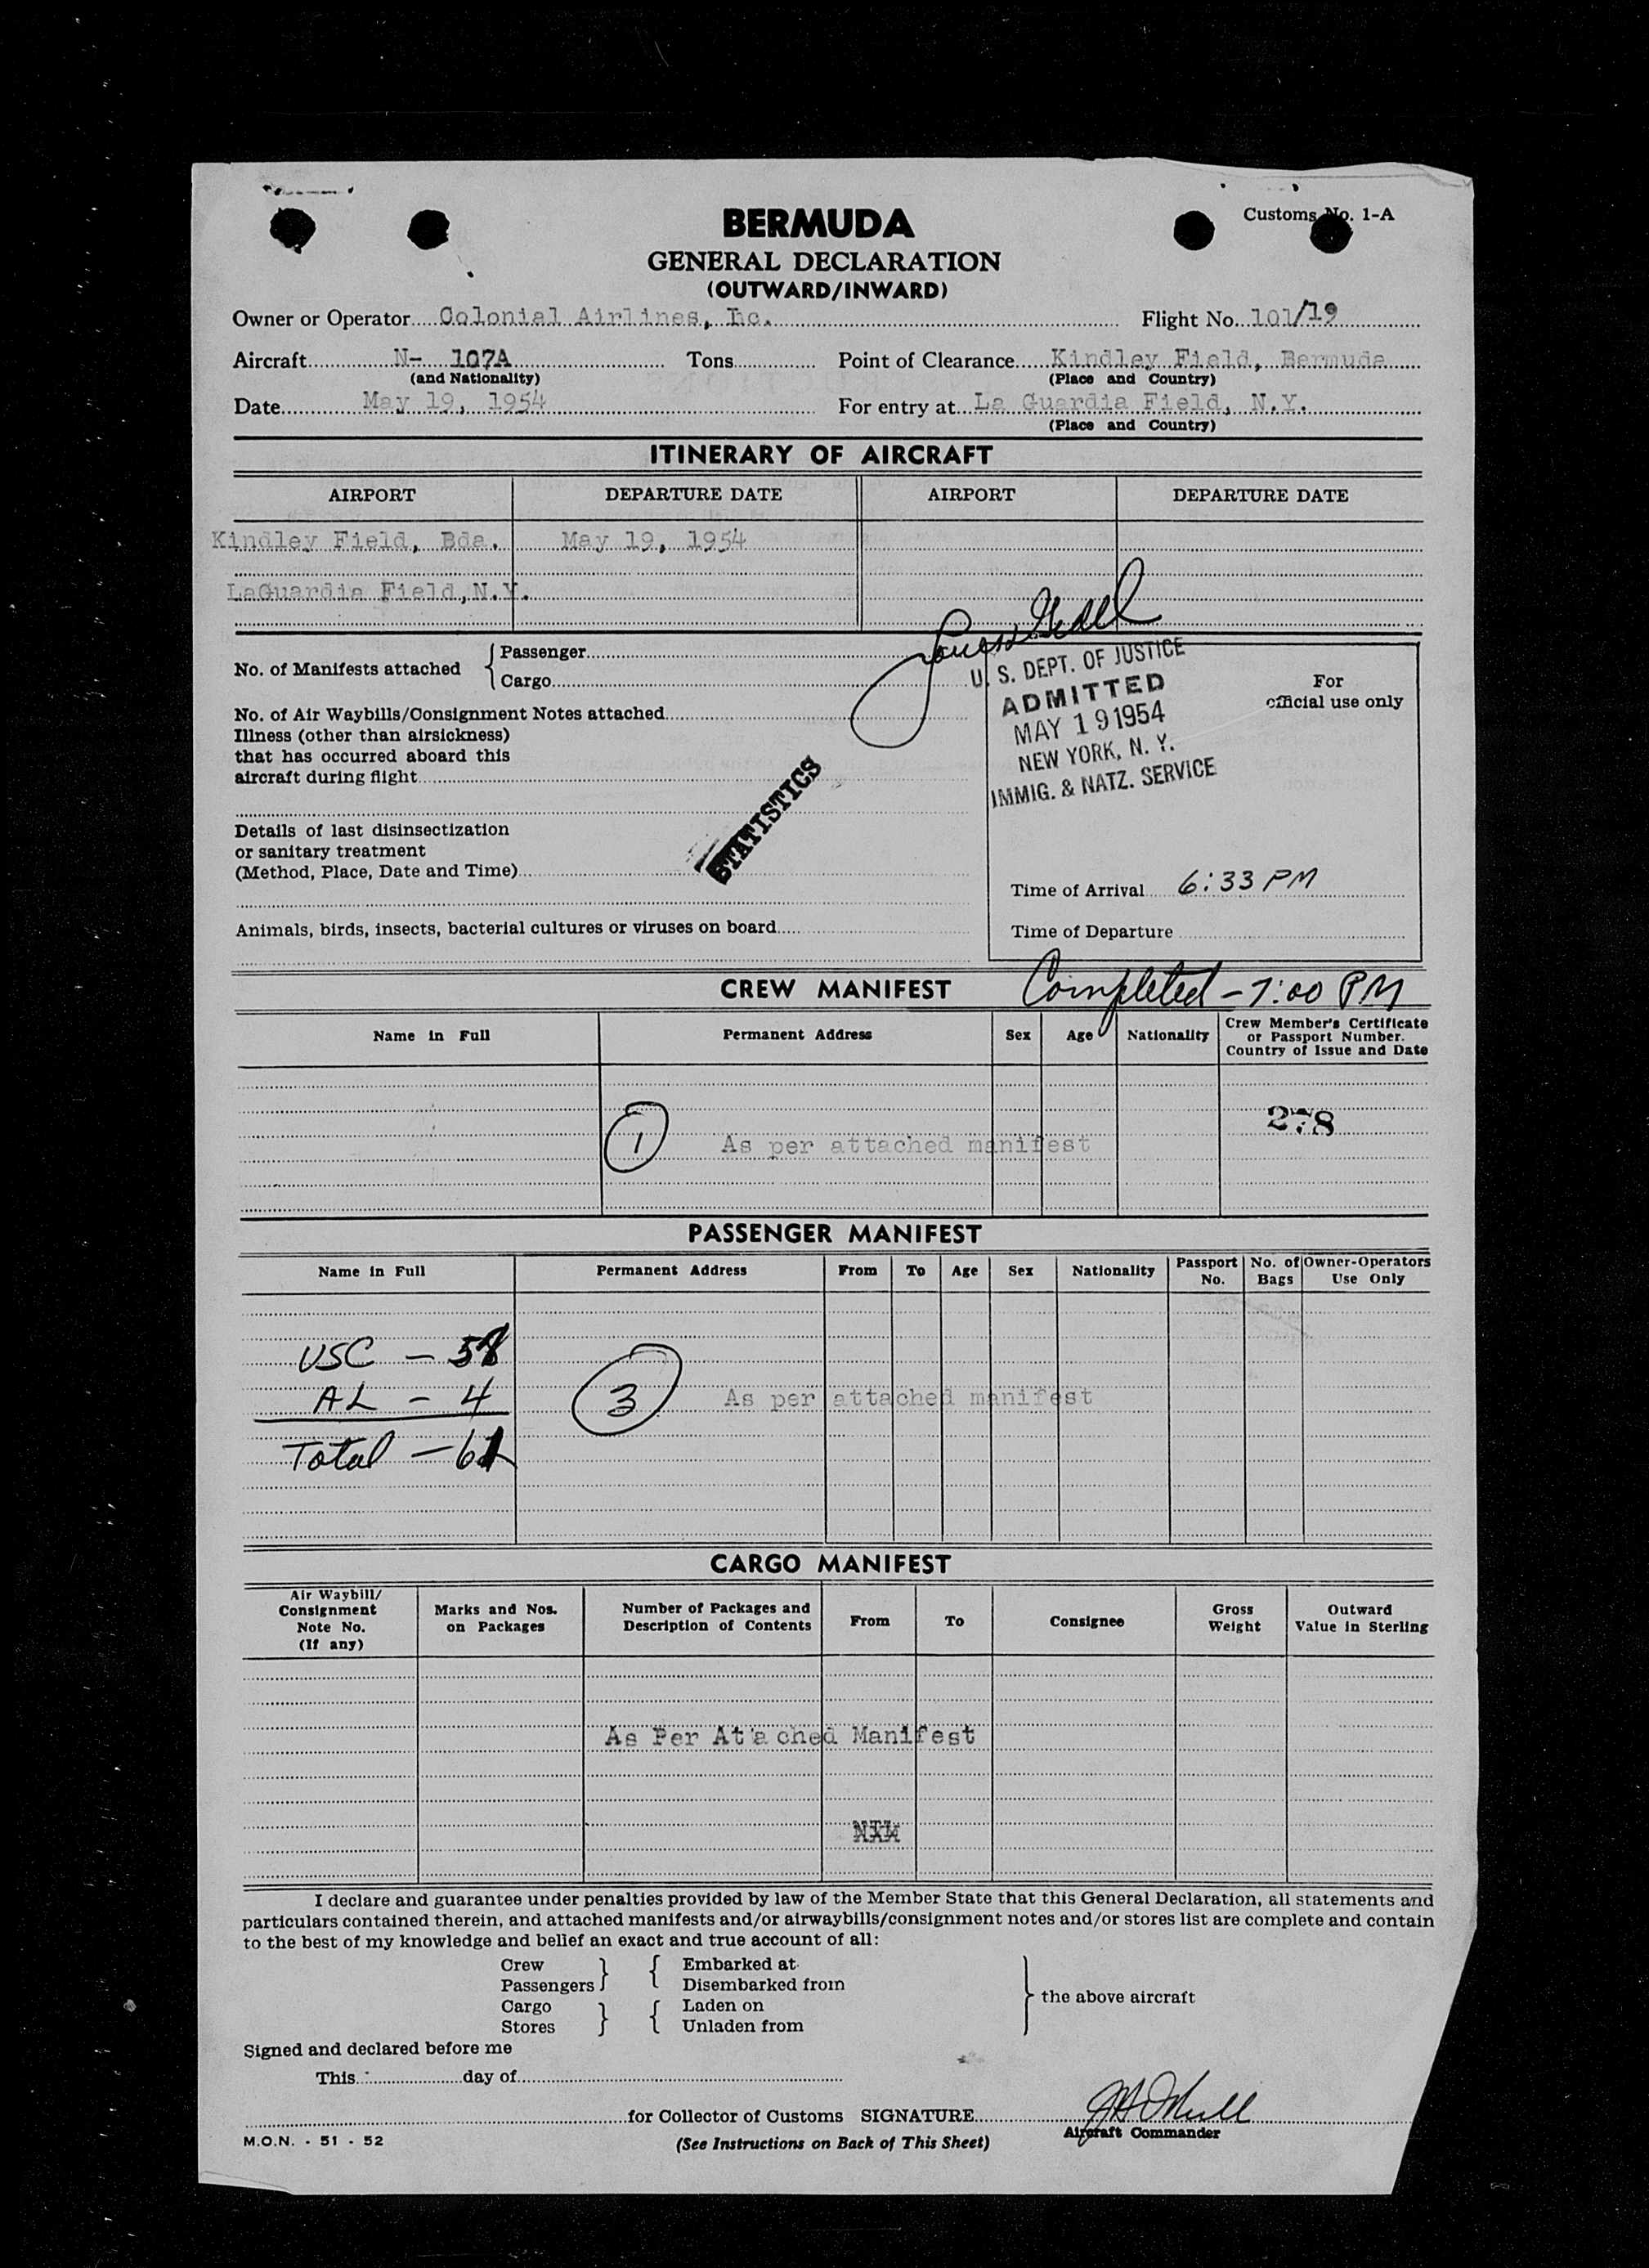 Customs No. 1-A
BERMUDA
GENERAL DECLARATION
(OUTWARD/INWARD)
Owner or Operator Colonial Airlines, Inc. Flight No. 101/19
Aircraft N- 107A Tons Point of Clearance Kindley Field, Bermuda
(and Nationality) (Place and Country)
Date May 19, 1954 For entry at La Guardia Field, N.Y.
(Place and Country)
ITINERARY OF AIRCRAFT
AIRPORT DEPARTURE DATE AIRPORT DEPARTURE DATE
Kindley Field, Bda. May 19, 1954
LaGuardia Field,N.Y.
No. of Manifests attached
Passenger
Cargo
No. of Air Waybills/Consignment Notes attached
Illness (other than airsickness)
that has occurred aboard this
aircraft during flight
STATISTICS
Details of last disinsectization
or sanitary treatment
(Method, Place, Date and Time)
Animals, birds, insects, bacterial cultures or viruses on board
U. S. DEPT. OF JUSTICE
ADMITTED
MAY 19 1954
NEW YORK, N. Y.
IMMIG. & NATZ. SERVICE
For
official use only
Time of Arrival 6:33 PM
Time of Departure
CREW MANIFEST Completed - 7:00 PM
Name in Full Permanent Address Sex Age Nationality Crew Member's Certificate
or Passport Number.
Country of Issue and Date
278
1 As per attached manifest
PASSENGER MANIFEST
Name in Full Permanent Address From To Age Sex Nationality Passport No. No. of Bags Owner-Operators Use Only
USC -
AL - 4
3 As per attached manifest
Total -
CARGO MANIFEST
Air Waybill/
Consignment
Note No.
(If any)
Marks and Nos.
on Packages
Number of Packages and
Description of Contents
From To Consignee
Gross
Weight
Outward
Value in Sterling
As Per Atta ched Manifest
I declare and guarantee under penalties provided by law of the Member State that this General Declaration, all statements and
particulars contained therein, and attached manifests and/or airwaybills/consignment notes and/or stores list are complete and contain
to the best of my knowledge and belief an exact and true account of all:
Crew Embarked at
Passengers Disembarked from
Cargo Laden on
Stores Unladen from
the above aircraft
Signed and declared before me
This day of
for Collector of Customs SIGNATURE
Aircraft Commander
M.O.N. - 51 - 52 (See Instructions on Back of This Sheet)